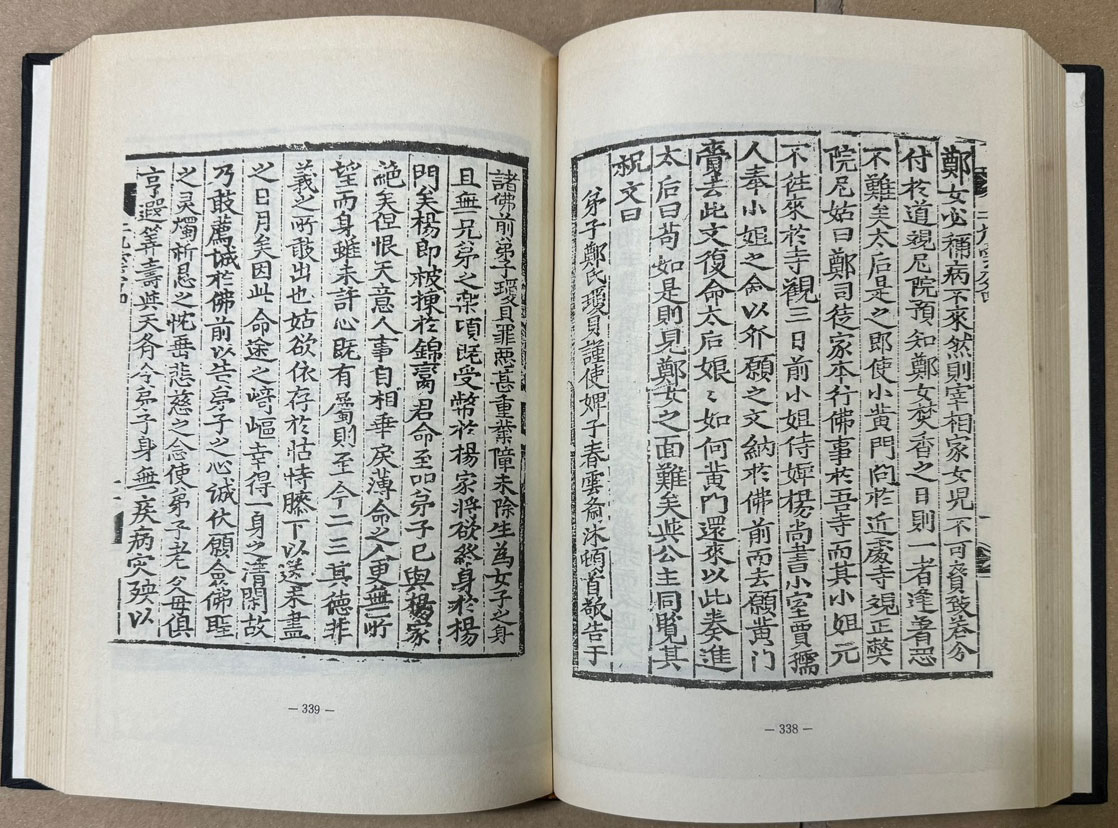 鄭女必稱病不來然則宰相家女児不可賫致若分
付於道覌尼院預知鄭女焚香之日則一者逢着恐
不難矣太后是之即使小黄門问於近處寺覌正㷊
院尼姑曰鄭司徒家本行佛事於吾寺而其小姐元
不徃來於寺觀三日前小姐侍婢楊尚書小室賈孺
人奉小姐之命以發願之文納於佛前而去願黄门
賫去此文復命太后娘〻如何黄門還來以此奏進
太后曰苟如是則見鄭女之面難矣與公主同覧其
祝文曰
弟子鄭氏瓊貝謹使婢子春雲斎沐頓首敬告于
諸佛前弟子瓊貝罪惡甚重業障未除生為女子之身
且無兄弟之樂頃既受幣於楊家將欲終身於楊
門矣楊郎被揀於錦臠君命至嚴弟子已與楊家
絶矣但恨天意人事自相乖戾薄命之人更無所
望而身雖未許心既有屬則至今二三其德非
義之所敢出也姑欲依存於怙恃膝下以送未盡
之日月矣因此命途之崎嶇幸得一身之清閑故
乃敢薦誠於佛前以告弟子之心誠伏願佥佛聖
之灵燭祈恳之忱垂悲慈之念使弟子老父母俱
享遐筭壽與天斉令弟子身無疾病灾殃以
— 338 —
— 339 —